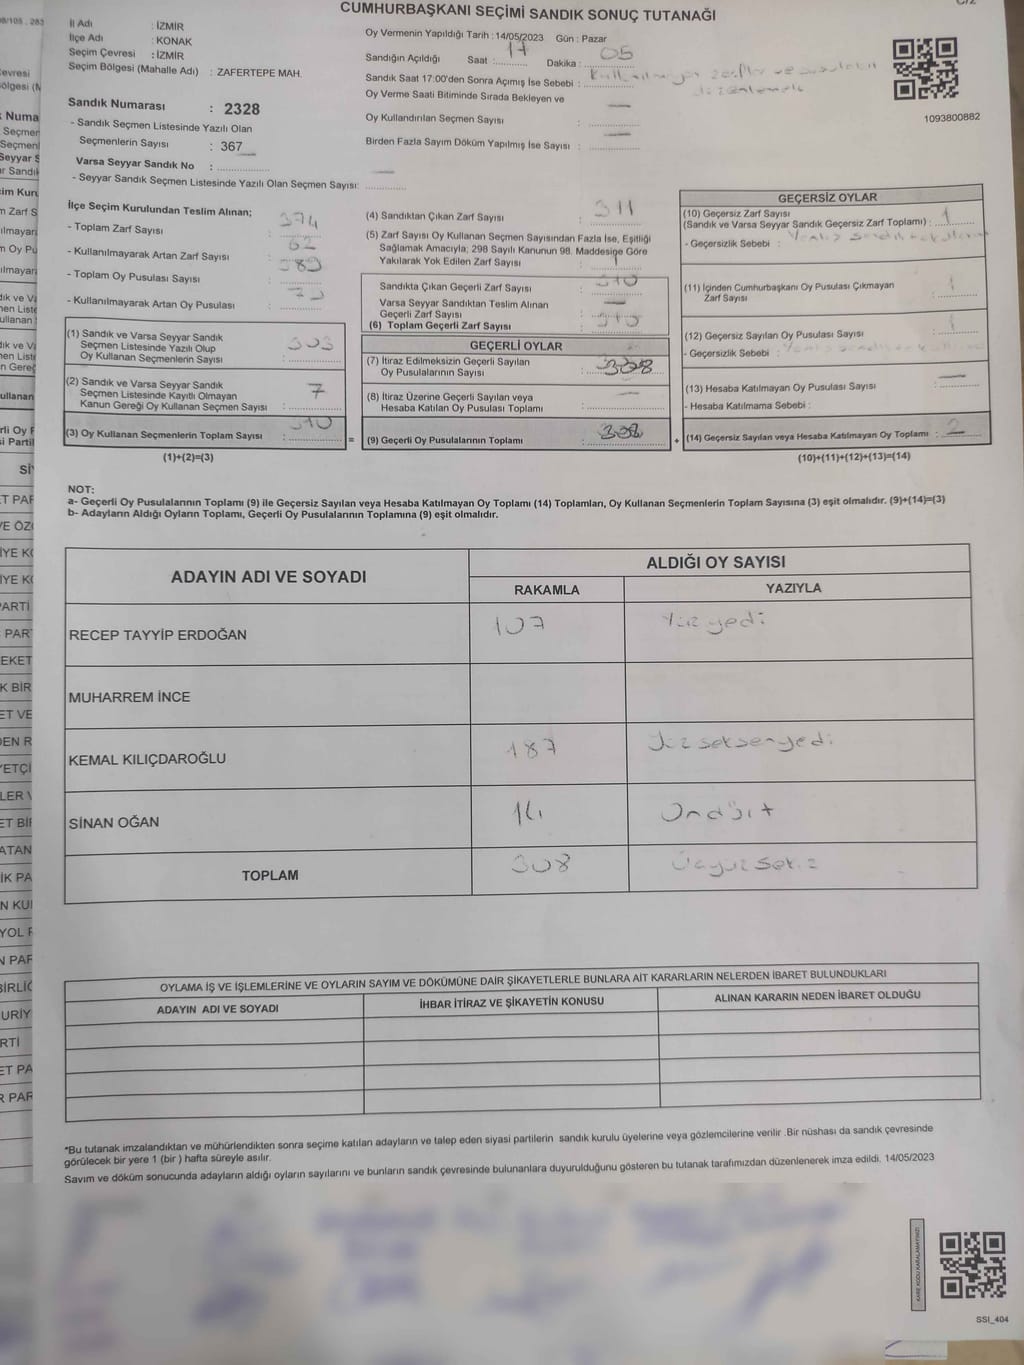 CUMHURBAŞKANI SEÇİMİ SANDIK SONUÇ TUTANAĞI
İl Adı : İZMİR
İlçe Adı : KONAK
Seçim Çevresi : İZMİR
Seçim Bölgesi (Mahalle Adı) : ZAFERTEPE MAH.
Sandık Numarası : 2328
- Sandık Seçmen Listesinde Yazılı Olan
Seçmenlerin Sayısı : 367
Varsa Seyyar Sandık No :
- Seyyar Sandık Seçmen Listesinde Yazılı Olan Seçmen Sayısı:
Oy Vermenin Yapıldığı Tarih : 14/05/2023 Gün : Pazar
Sandığın Açıldığı Saat : 17 Dakika : 05
Sandık Saat 17:00'den Sonra Açımış İse Sebebi : Kullanılmayan zarflar ve
Oy Verme Saati Bitiminde Sırada Bekleyen ve
Oy Kullandırılan Seçmen Sayısı :
Birden Fazla Sayım Döküm Yapılmış İse Sayısı :
1093800882
İlçe Seçim Kurulundan Teslim Alınan;
- Toplam Zarf Sayısı : 374
- Kullanılmayarak Artan Zarf Sayısı : 62
- Toplam Oy Pusulası Sayısı : 383
- Kullanılmayarak Artan Oy Pusulası : 73
(1) Sandık ve Varsa Seyyar Sandık
Seçmen Listesinde Yazılı Olup
Oy Kullanan Seçmenlerin Sayısı : 303
(2) Sandık ve Varsa Seyyar Sandık
Seçmen Listesinde Kayıtlı Olmayan
Kanun Gereği Oy Kullanan Seçmen Sayısı : 7
(3) Oy Kullanan Seçmenlerin Toplam Sayısı : 310 =
(1)+(2)=(3)
(4) Sandıktan Çıkan Zarf Sayısı : 311
(5) Zarf Sayısı Oy Kullanan Seçmen Sayısından Fazla İse, Eşitliği
Sağlamak Amacıyla; 298 Sayılı Kanunun 98. Maddesine Göre
Yakılarak Yok Edilen Zarf Sayısı : 1
Sandıkta Çıkan Geçerli Zarf Sayısı : 310
Varsa Seyyar Sandıktan Teslim Alınan
Geçerli Zarf Sayısı :
(6) Toplam Geçerli Zarf Sayısı : 310
GEÇERLİ OYLAR
(7) İtiraz Edilmeksizin Geçerli Sayılan
Oy Pusulalarının Sayısı : 308
(8) İtiraz Üzerine Geçerli Sayılan veya
Hesaba Katılan Oy Pusulası Toplamı :
(9) Geçerli Oy Pusulalarının Toplamı : 308 +
GEÇERSİZ OYLAR
(10) Geçersiz Zarf Sayısı
(Sandık ve Varsa Seyyar Sandık Geçersiz Zarf Toplamı) : 1
- Geçersizlik Sebebi : Yanlış
(11) İçinden Cumhurbaşkanı Oy Pusulası Çıkmayan
Zarf Sayısı : 1
(12) Geçersiz Sayılan Oy Pusulası Sayısı : 1
- Geçersizlik Sebebi : Yanlış
(13) Hesaba Katılmayan Oy Pusulası Sayısı :
- Hesaba Katılmama Sebebi :
(14) Geçersiz Sayılan veya Hesaba Katılmayan Oy Toplamı : 2
(10)+(11)+(12)+(13)=(14)
NOT:
a- Geçerli Oy Pusulalarının Toplamı (9) ile Geçersiz Sayılan veya Hesaba Katılmayan Oy Toplamı (14) Toplamları, Oy Kullanan Seçmenlerin Toplam Sayısına (3) eşit olmalıdır. (9)+(14)=(3)
b- Adayların Aldığı Oyların Toplamı, Geçerli Oy Pusulalarının Toplamına (9) eşit olmalıdır.
ADAYIN ADI VE SOYADI
ALDIĞI OY SAYISI
RAKAMLA YAZIYLA
RECEP TAYYİP ERDOĞAN 107 Yüz yedi
MUHARREM İNCE
KEMAL KILIÇDAROĞLU 187 Yüz seksen yedi
SİNAN OĞAN 14 Ondört
TOPLAM 308 Üçyüz sekiz
OYLAMA İŞ VE İŞLEMLERİNE VE OYLARIN SAYIM VE DÖKÜMÜNE DAİR ŞİKAYETLERLE BUNLARA AİT KARARLARIN NELERDEN İBARET BULUNDUKLARI
ADAYIN ADI VE SOYADI
İHBAR İTİRAZ VE ŞİKAYETİN KONUSU
ALINAN KARARIN NEDEN İBARET OLDUĞU
*Bu tutanak imzalandıktan ve mühürlendikten sonra seçime katılan adayların ve talep eden siyasi partilerin sandık kurulu üyelerine veya gözlemcilerine verilir .Bir nüshası da sandık çevresinde
görülecek bir yere 1 (bir ) hafta süreyle asılır.
Sayım ve döküm sonucunda adayların aldığı oyların sayılarını ve bunların sandık çevresinde bulunanlara duyurulduğunu gösteren bu tutanak tarafımızdan düzenlenerek imza edildi. 14/05/2023
KARE KODU KARALAMAYINIZ!
SSI_404